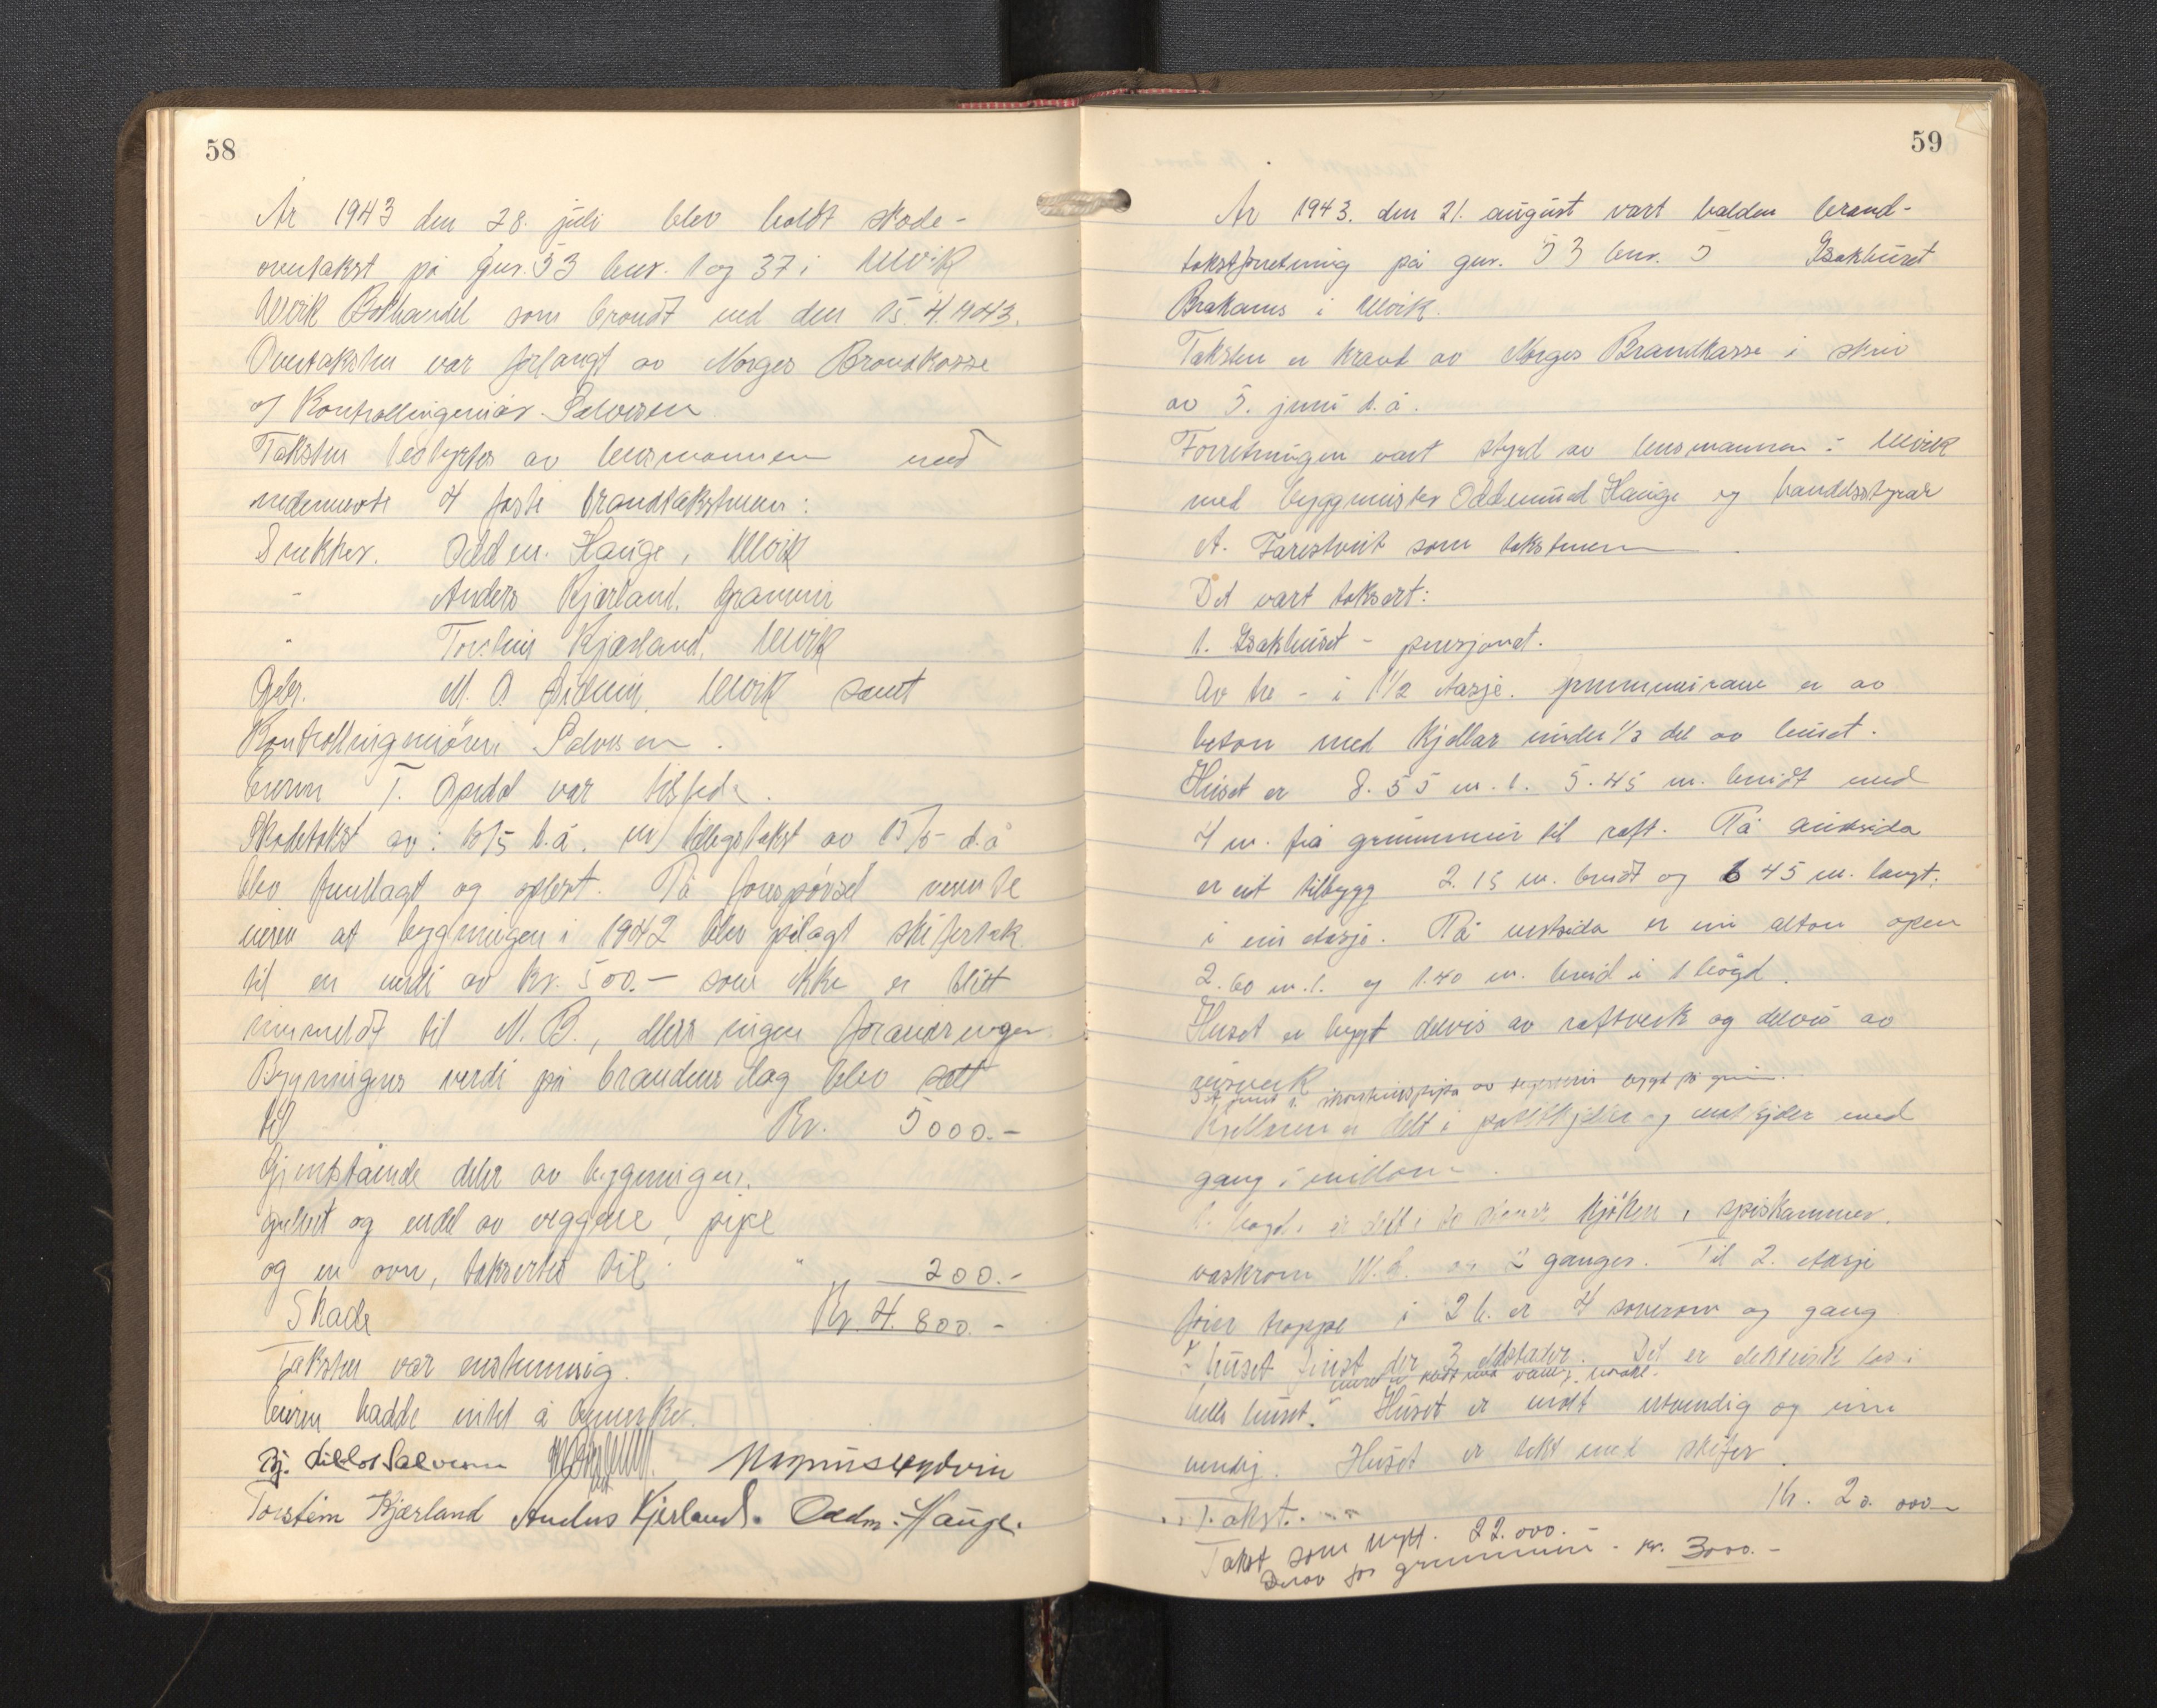 58
År 1943 den 28. juli blev holdt skade-
overtakst på gnr. 53 bnr. 1 og 37 i Ulvik
Ulvik Bokhandel som brandt ned den 15. 4. 1943.
Overtaksten var forlangt av Norges Brandkasse
v/ Kontrollingeniør Salvesen
Taksten bestyrtes av lensmannen med
nedennevnte 4 faste brandtakstmenn:
Snekker. Oddm. Hauge, Ulvik
- Anders Kjærland, Granvin
" Torstein Kjærland, Ulvik
M. O. Ulvik samt
Kontrollingeniøren Salvesen.
Eieren T. Opedal var tilstede.
Skadetakst av: 6/5 d.å. m/ tilleggstakst av 15/5 d.å
blev fremlagt og oplest. På forespørsel nevnte
eieren at bygningen i 1942 blev pålagt skifertak
til en verdi av kr. 500.- som ikke er blitt
innmeldt til N. B., ellers ingen forandringer
Bygningens verdi på brandens dag blev satt
til Kr. 5000.-
Gjenstående deler av bygningen,
gulvet og endel av veggene, pipe
og en ovn, taksertes til " 200.-
Skade Kr. 4.800.-
Taksten var enstemmig.
Eieren hadde intet å bemerke.
Salvesen Magnus Lydvin
Torstein Kjærland Anders Kjerland. Oddm. Hauge.
59
År 1943. den 21. august vart halden brand-
takstforretning på gnr. 53 bnr. 5 Isakhuset
Brakanes i Ulvik.
Taksten er kravd av Norges Brandkasse i skriv
av 5. juni d.å.
Forretningen vart styrd av lensmannen i Ulvik
med byggmeister Oddmund Hauge og
A. Farestveit som takstmenn.
Det vart taksert:
1. Isakhuset - pensjonat.
Av tre - i 1 1/2 etasje. grunnmurane er av
beton med kjellar under 1/3 del av huset.
Huset er 8.55 m. l. 5.45 m. breidt med
4 m. frå grunnmur til raft. På
er eit tilbygg 2.15 m. breidt og 6 45 m. langt.
i ein etasje. På vestsida er ein altan open
2.60 m. l. og 1.40 m. breid i 1 högd.
Huset er bygt delvis av raftverk og delvis av
reisverk
skorsteinspipa av tegelstein bygd på grunn.
Kjellaren er delt i potetkjeller og matkjeller med
gang i millom.
1. högd. er delt i to stover kjöken, spiskammer.
vaskrom W.C. og 2 ganger. Til 2. etasje
fører trappe i 2 h. er 4 soverom og gang
I huset finst der 3 eldstader. Det er elektrisk lys i
heile huset. Huset er målt utvendig og inn
vendig. Huset er tekt med skifer.
Takst. Kr. 20.000.-
Takst som nytt. 22.000.-
Derav for grunnmur - kr. 3000.-